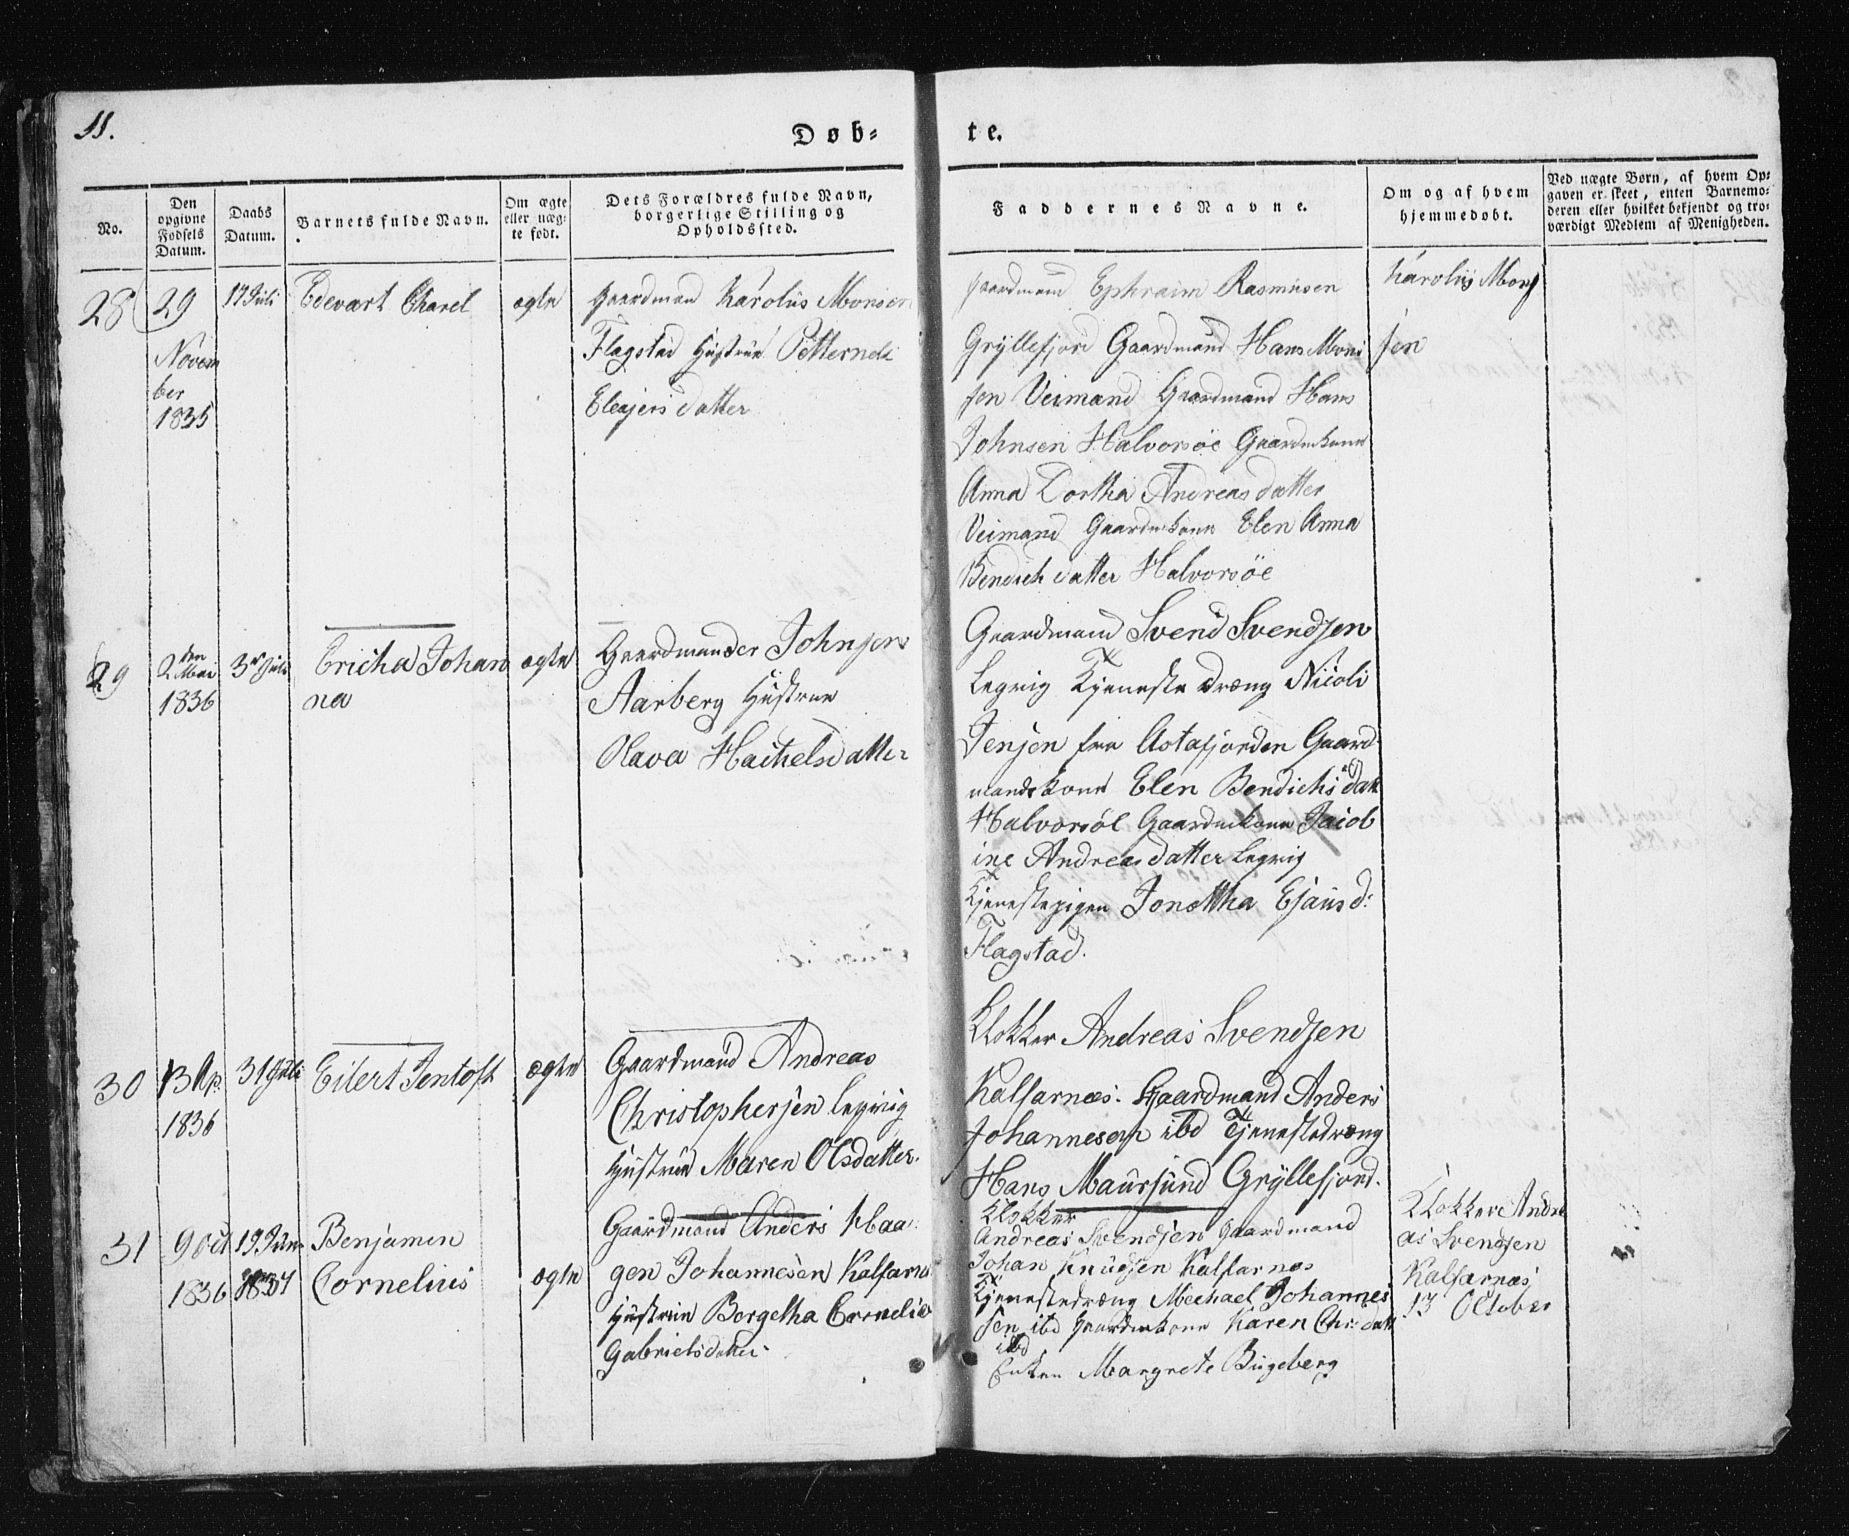 11.
Døb=
te.
No.
Den opgivne Fødsels Datum.
Daabs Datum.
Barnets fulde Navn.
Om ægte eller uæg- te født.
Dets Forældres fulde Navn, borgerlige Stilling og Opholdssted.
Faddernes Navne.
Om og af hvem hjemmedøbt.
Ved uægte Børn, af hvem Op- gaven er skeet, enten Barnemo- deren eller hvilket bekjendt og tro- værdigt Medlem af Menigheden.
28
29
Novem
ber
1835
17 Juli
Edevart Charel
ægte
Gaardmand Karolus Monsen
Flagstad Hustrue Petternele
Eleajers datter
Gaardmand Ephraim Rasmusen
Gryllefjord Gaardmand Hans Mons
sen Veimand Gaardmand Hans
Johnsen Halvorsöe Gaardmkone
Anna Dorthea Andreas datter
Veimand Gaardmkone Elen Anna
Bendich datter Halvorsöe
Karolus Mons
sen
29
2den Mai
1836
3 Juli
Ericha Johan
na
ægte
Gaardmand Johnsen
Aarberg Hustrue
Olava Hachelsdatter
Gaardmand Svend Svendsen
Legvig Tjeneste dræng Nicoli
Jensen fra Astafjorden Gaard
mandskone Elen Bendichs datt
Halvorsöe Gaardmkone Jacob
ine Andreasdatter Legvig
Tjenestepigen Jonettha Ejausd:
Flagstad.
30
13 Ap.
1836
31 Juli
Eilert Jentoft
ægte
Gaardmand Andreas
Christophersen Legvig
Hustrue Maren Olsdatter.
Klokker Andreas Svendsen
Kalfarnæs. Gaardmand Anders
Johannesen ibd Tjenestedræng
Hans Maursund Gryllefjord.
31
9 Oct
1836
19 Jun
1837
Benjamin
Cornelius
ægte
Gaardmand Anders Haa
gen Johannesen Kalfarnæs
Hustrue Bergetha Cornelia
Gabrielsdatter
Klokker
Andreas Svendsen Gaardmand
Johan Knudsen Kalfarnæs
Tjenestedræng Mechael Johannes
sen ibd Gaardmkone Karen Chr: datt
ibd
Enken Margrete Bugeberg
Klokker Andre
as Svendsen
Kalfarnæs
13 October